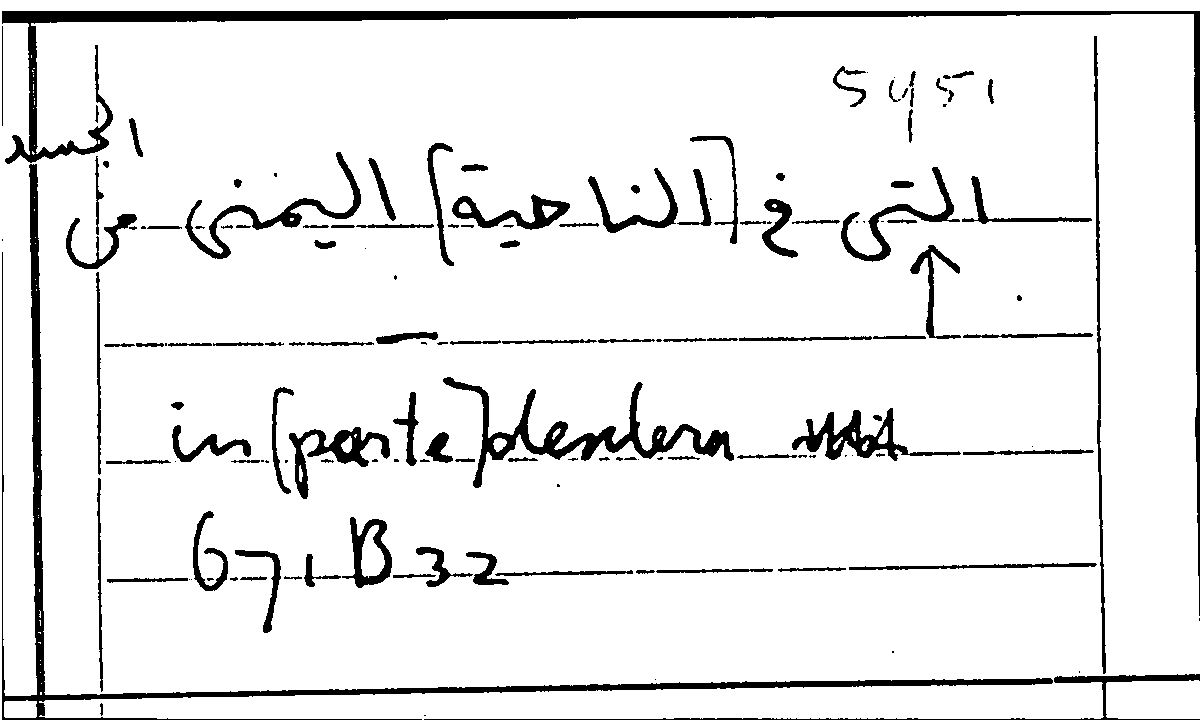 5451
التى فى [الناحية] اليمنى من
الجسد
in [parte] dextera
671 B 32